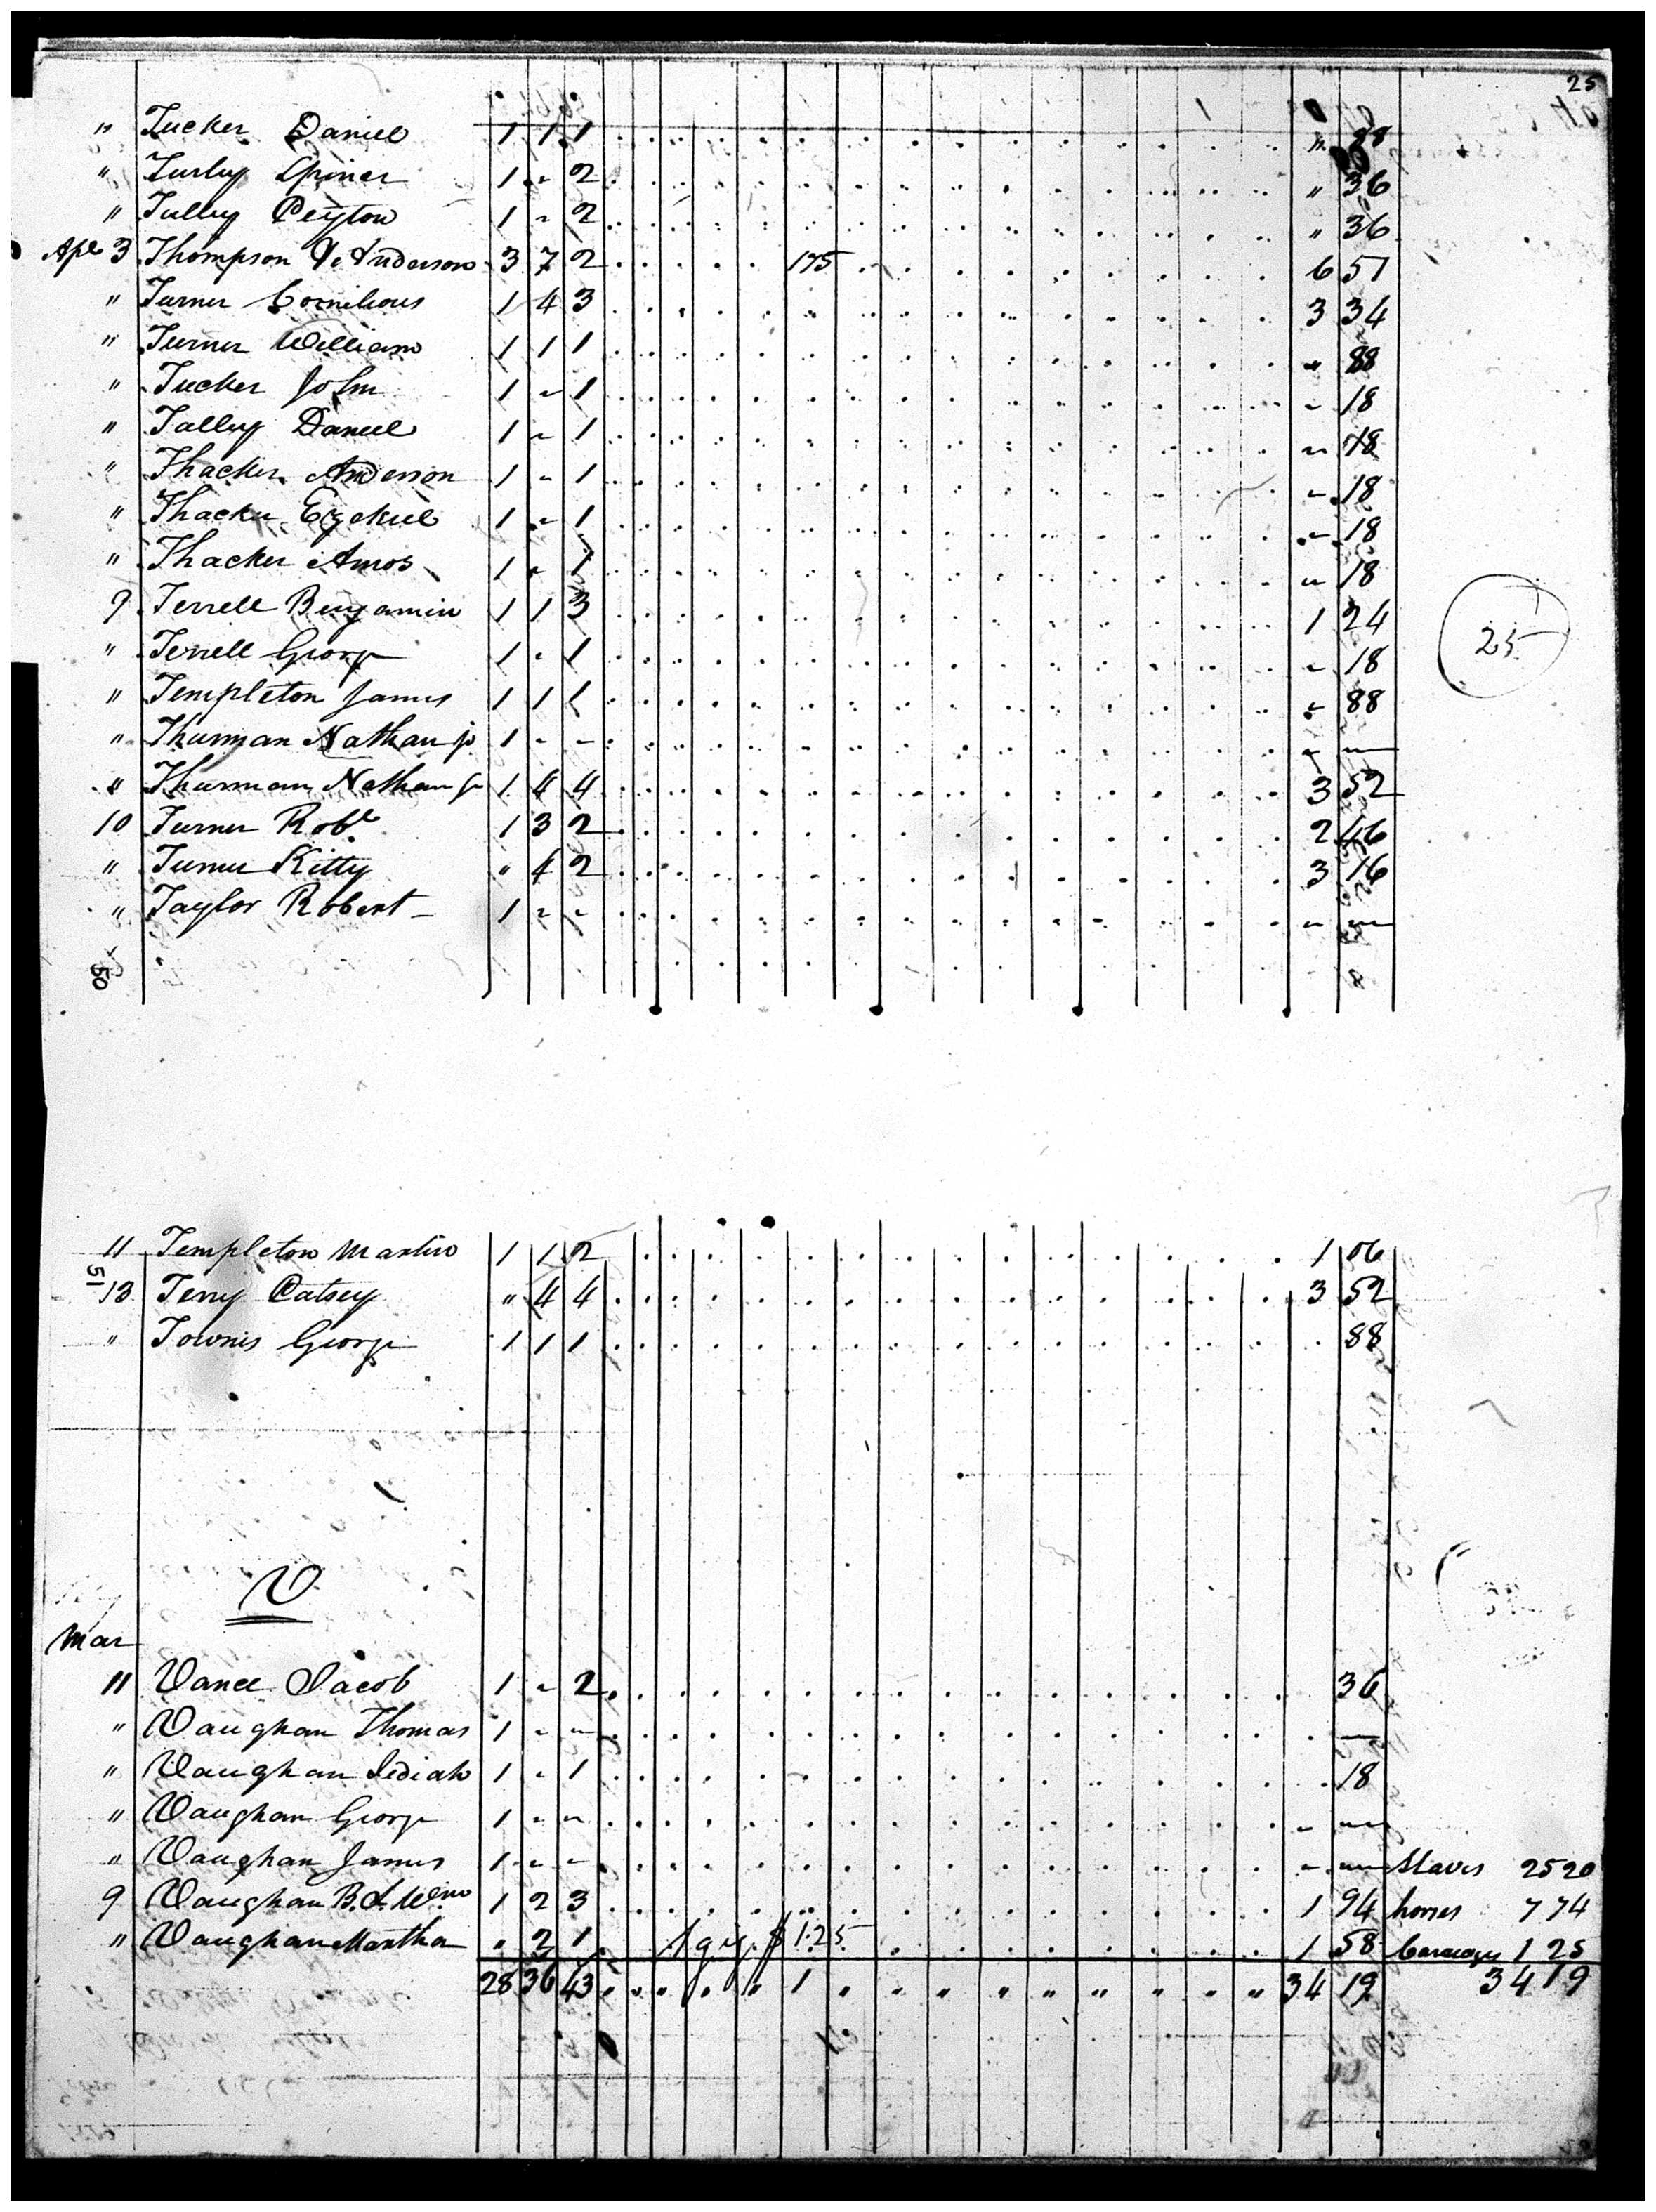 25
" Tucker Daniel 1 1 1 " 88
" Turley Spincer 1 - 2 " 36
" Tulley Peyton 1 - 2 " 36
Apl 3 Thompson & Anderson 3 7 2 175 6 51
" Turner Cornilious 1 4 3 3 34
" Turner William 1 1 1 " 88
" Tucker John 1 - 1 - 18
" Talley Daniel 1 - 1 - 18
" Thacker Anderson 1 - 1 - 18
" Thacker Ezekiel 1 - 1 - 18
" Thacker Amos 1 - 1 - 18
9 Terrell Benjamin 1 1 3 1 24
" Terrell George 1 - 1 - 18
25
" Templeton James 1 1 1 - 88
" Thurman Nathan jr 1 - - - -
" Thurman Nathan Sr 1 4 4 3 52
10 Turner Robt 1 3 2 2 46
" Turner Kitty " 4 2 3 16
" Taylor Robert - 1 - - - -
50
11 Templeton Martin 1 1 2 1 06
51
13 Terry Patsey " 4 4 3 52
" Townes George 1 1 1 88
V
Mar
11 Vance Jacob 1 - 2 36
" Vaughan Thomas 1 - - -
" Vaughan Jediah 1 - 1 18
" Vaughan George 1 - - - -
" Vaughan James 1 - - - - Slaves 25 20
9 Vaughan B. & Wm 1 2 3 1 94 horses 7 74
" Vaughan Martha " 2 1 1 gig. $ 1.25 1 58 Carriages 1 25
28 36 43 " " " " " 1 " " " " " " " " " 34 19 34 19